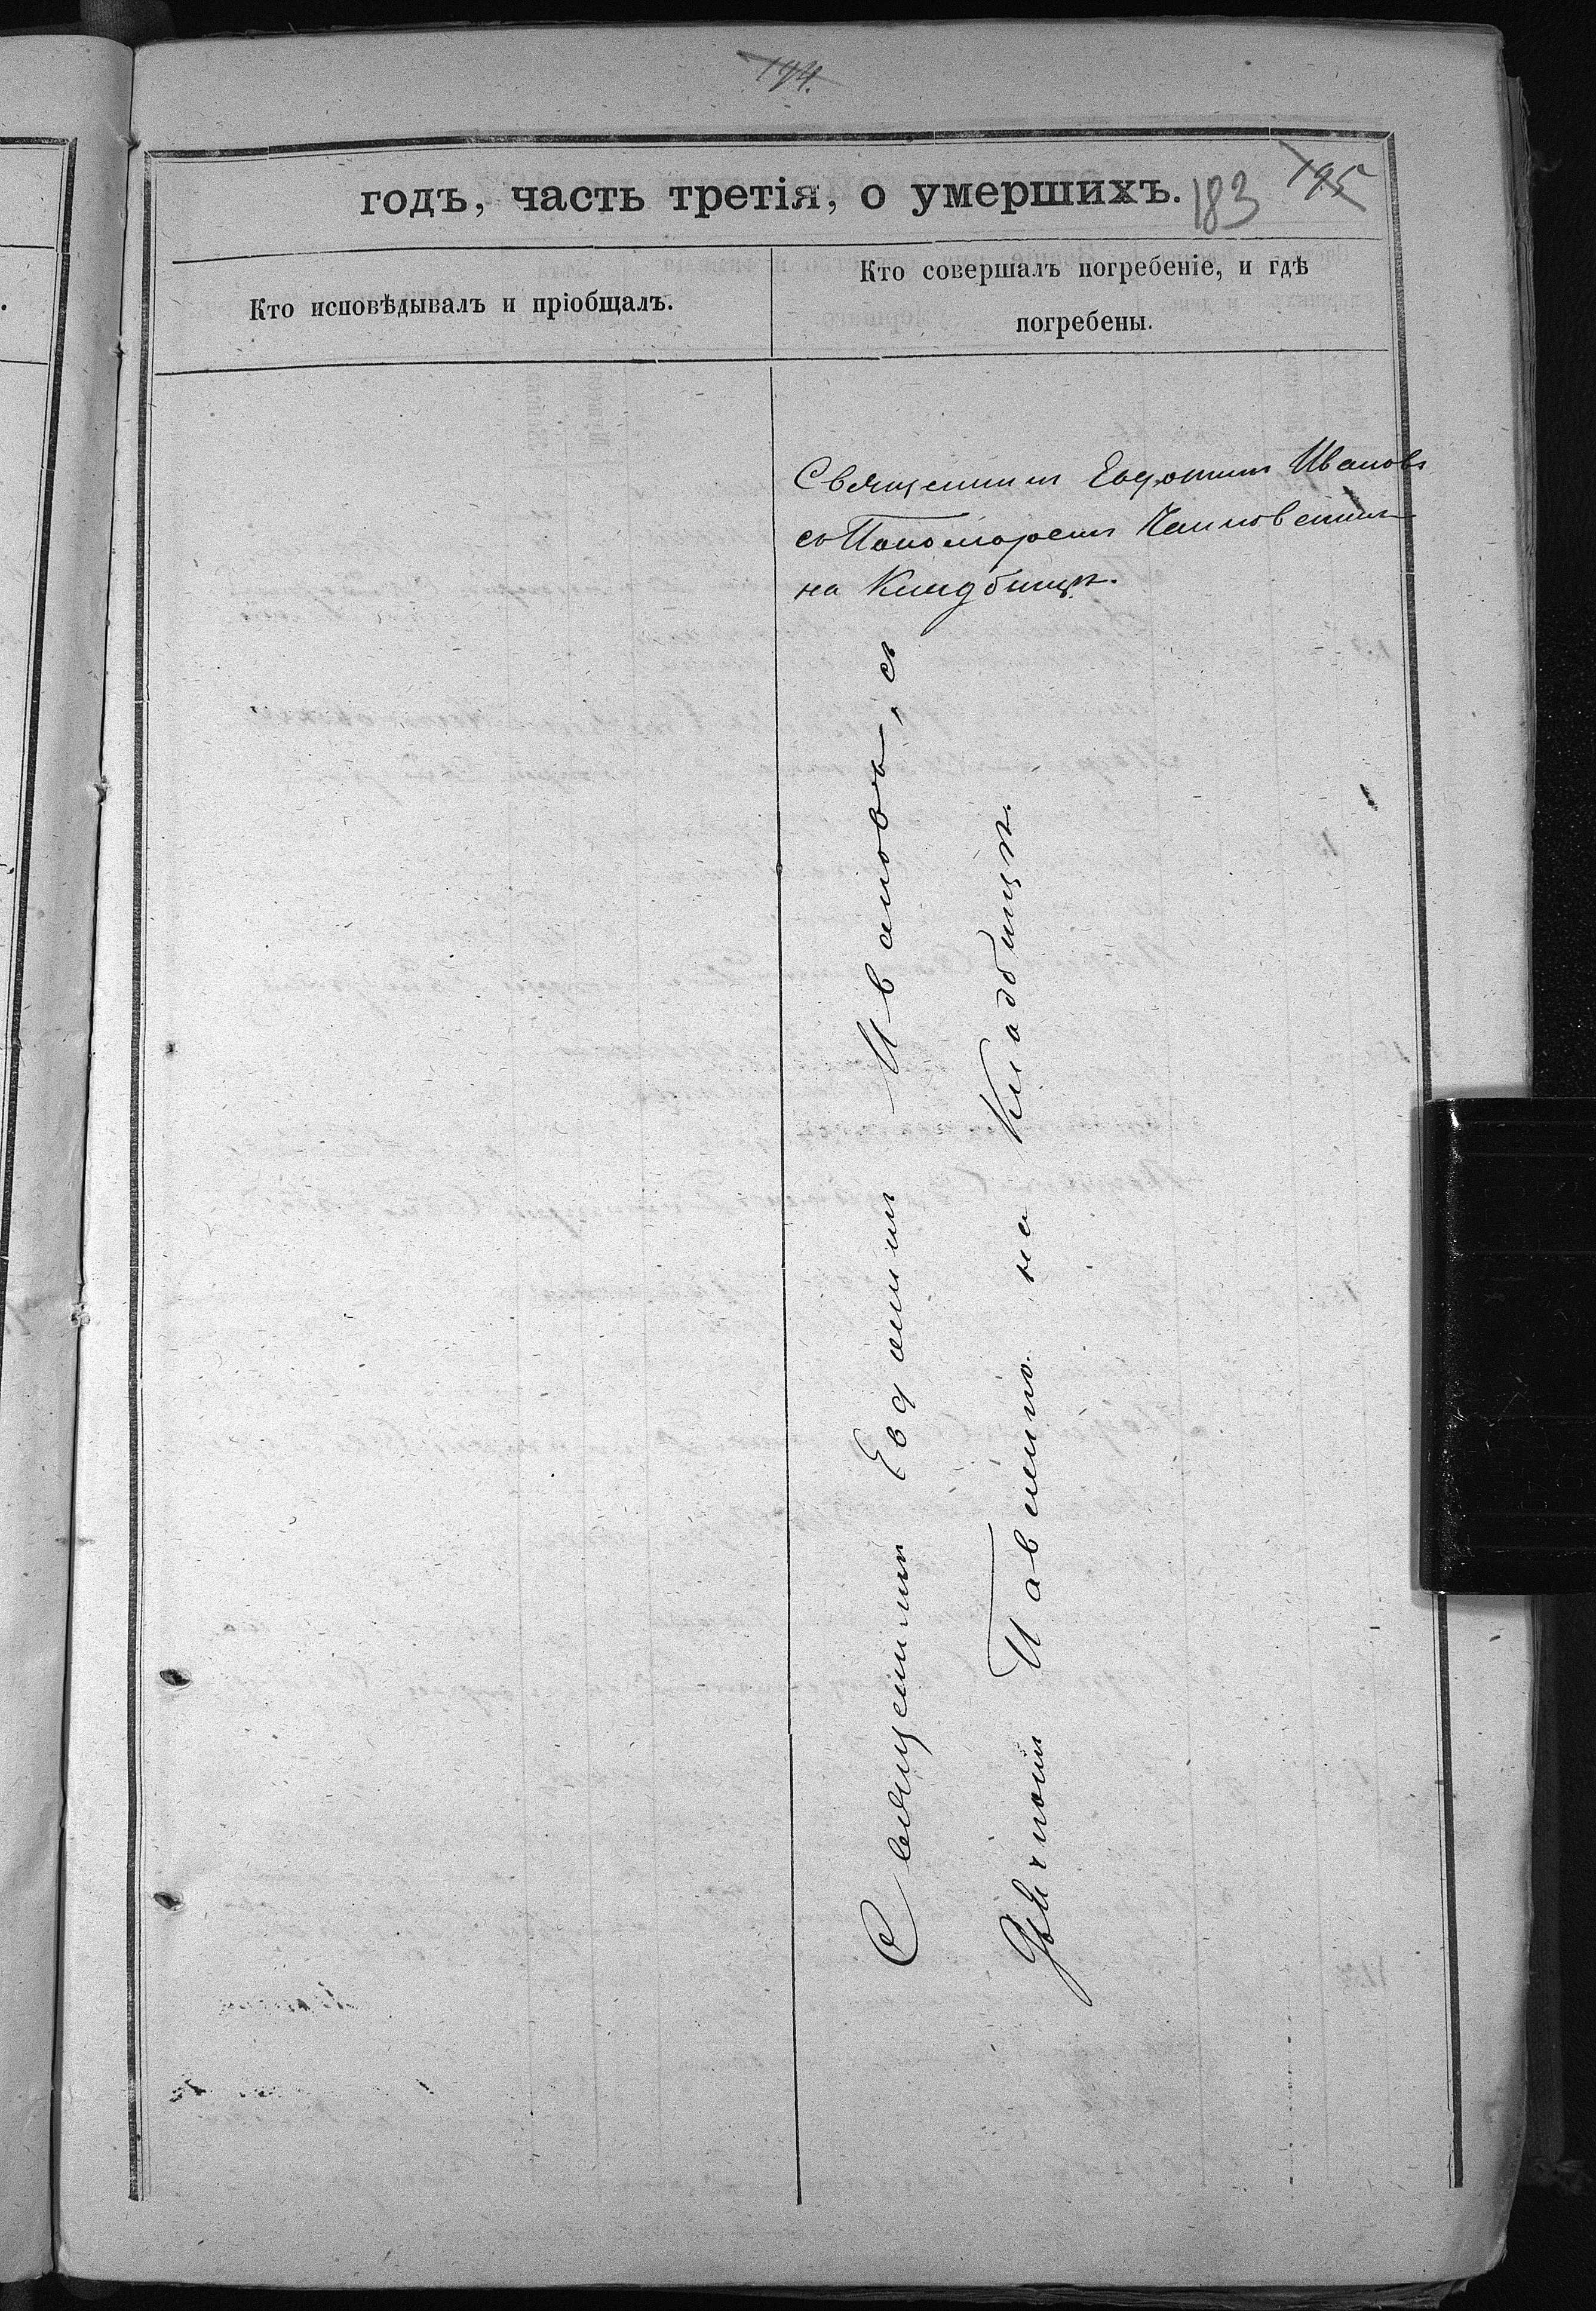 194.
годъ, часть третія, о умершихъ.
183
195
Кто исповѣдывалъ и пріобщалъ.
Кто совершалъ погребеніе, и гдѣ
погребены.
Священникъ Евдокимъ Ивановъ
съ Пономаремъ
на Кладбищѣ.
Священникъ Евдокимъ Ивановъ, съ
на Кладбищѣ.